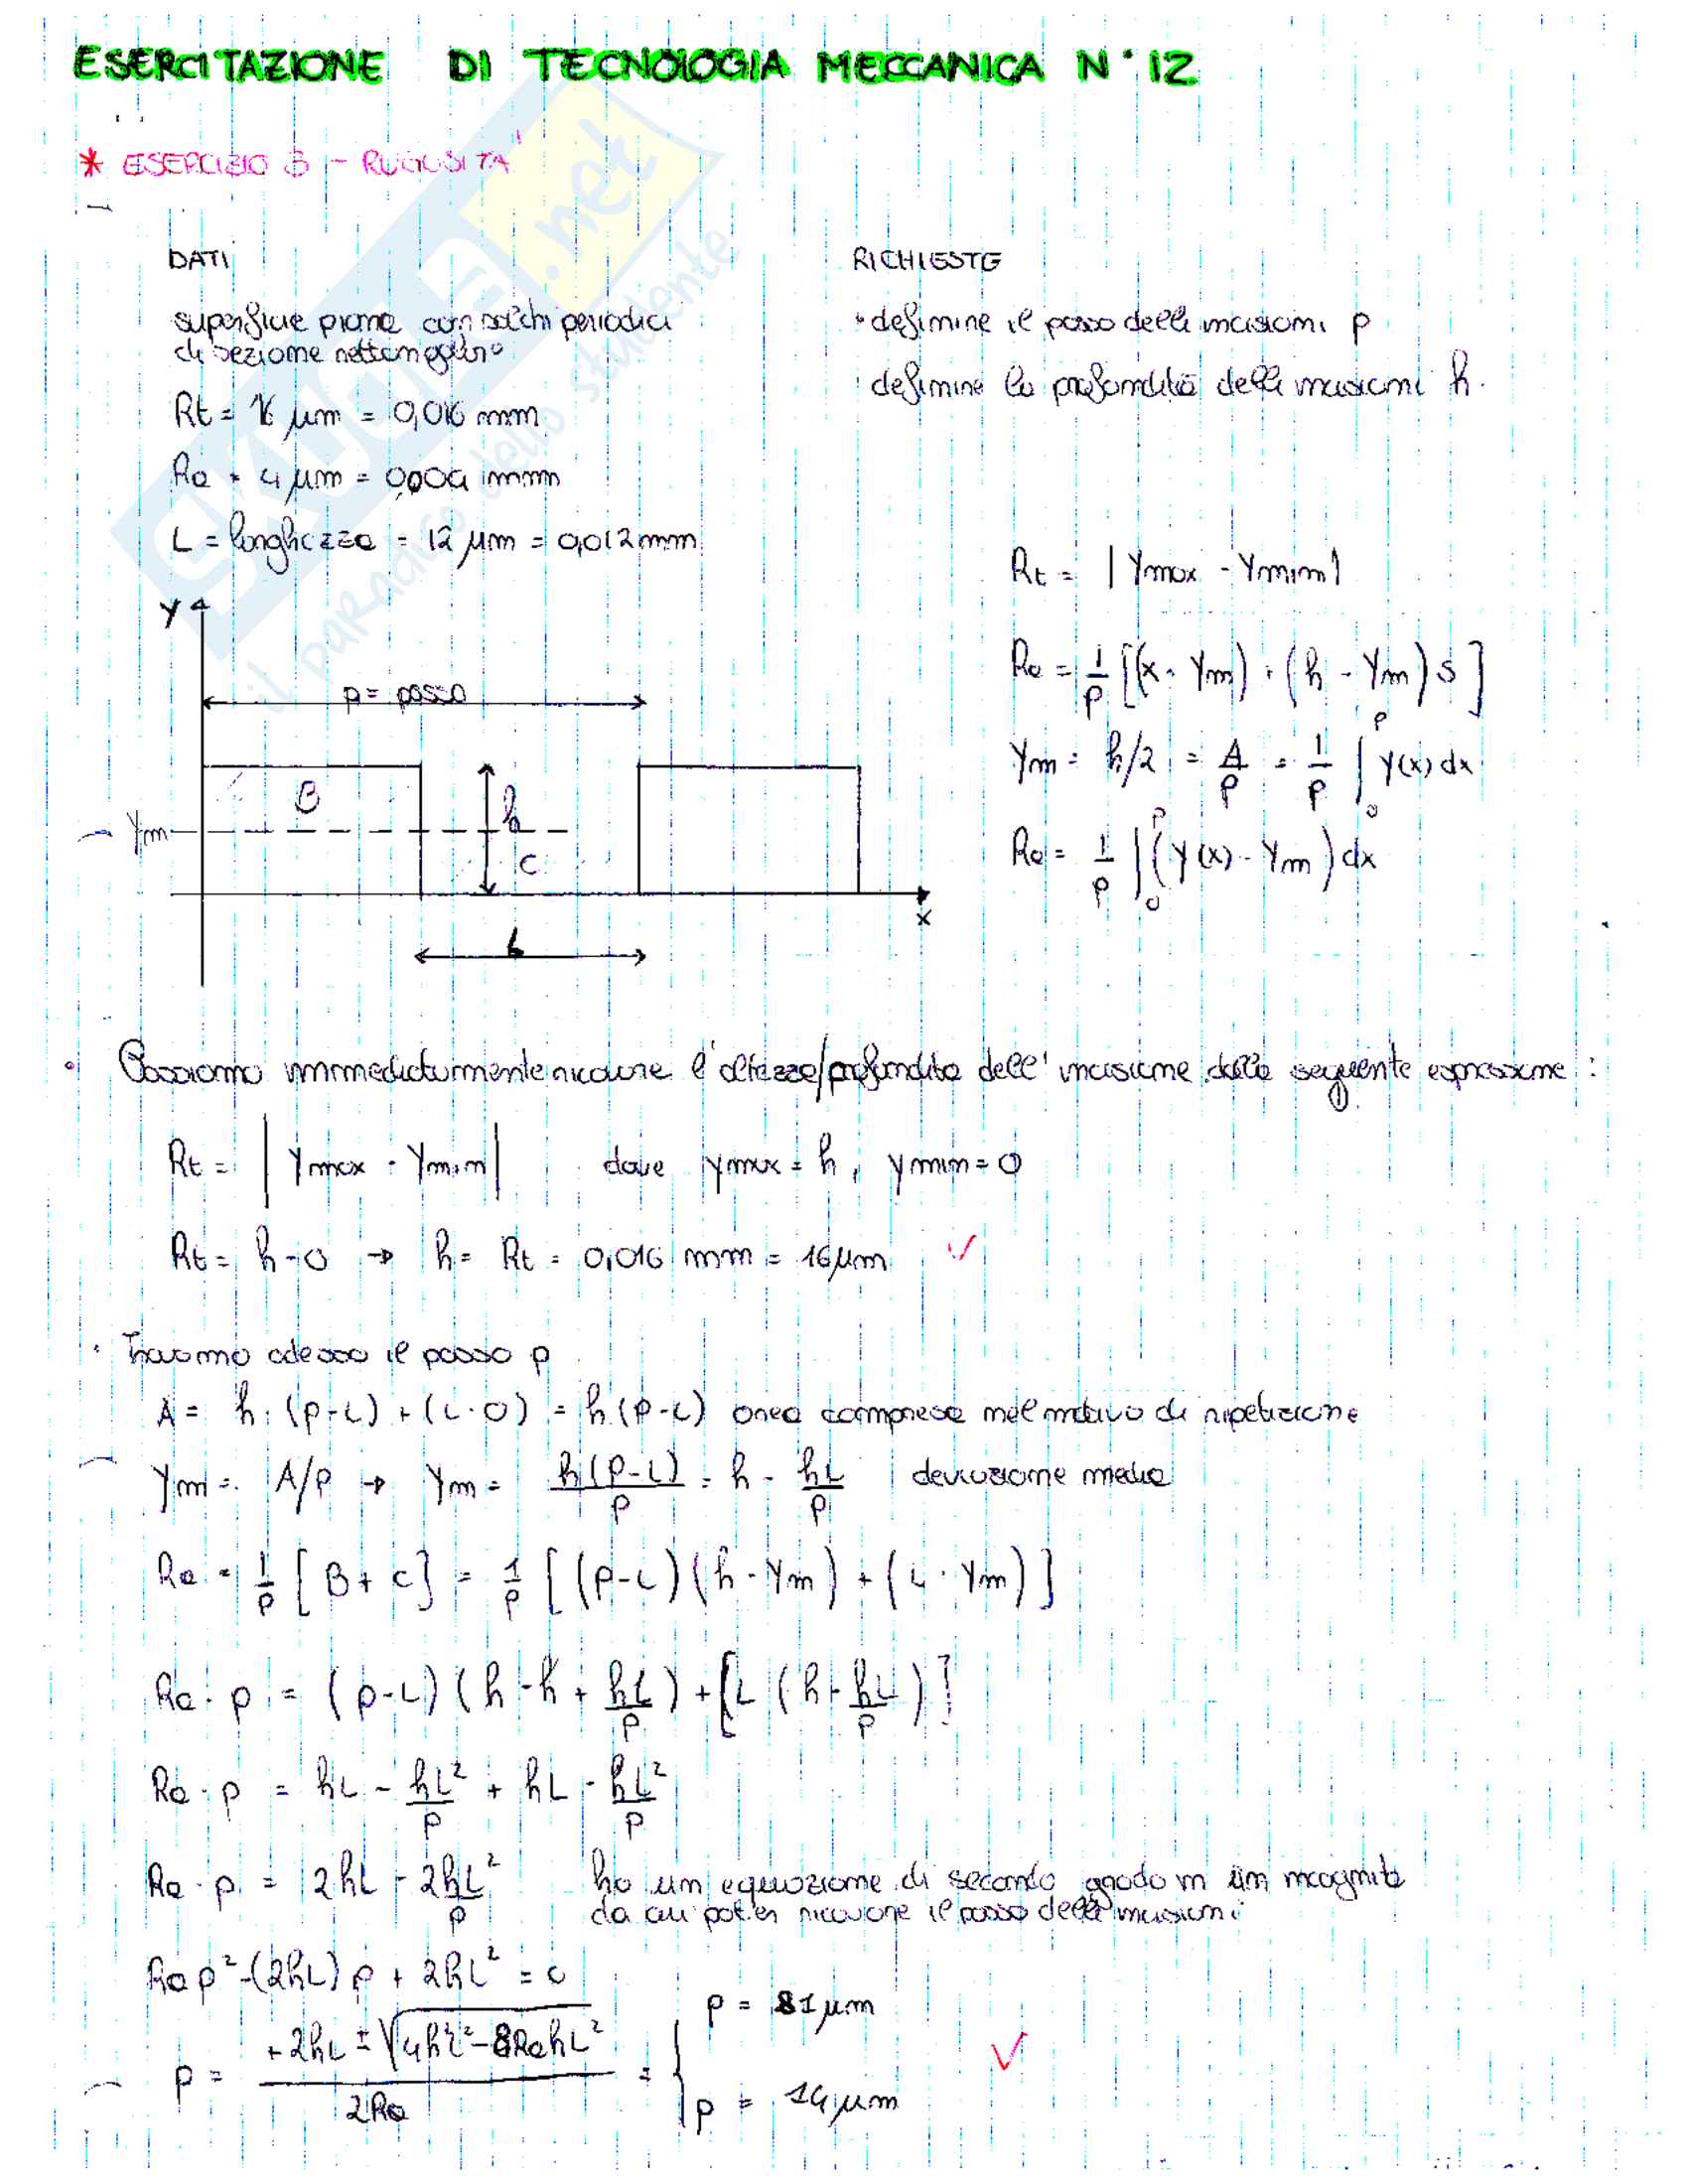 ESERCITAZIONE DI TECNOLOGIA MECCANICA N°12
* ESERCIZIO 3 - RUGOSITA'
DATI
superficie piana con solchi periodici
di sezione rettangolare
Rt = 16 μm = 0,016 mm
Ra = 4 μm = 0,004 mm
L = larghezza = 12 μm = 0,012 mm
RICHIESTE
· definire il passo delle incisioni p
· definire la profondità delle incisioni h.
Rt = | Ymax - Ymin |
Ra = 1/p [(x · Ym) + (h - Ym) s]
Ym = h/2 = A/p = 1/p ∫₀ᵖ y(x) dx
Ra = 1/p ∫₀ᵖ (y(x) - Ym) dx
Y
p = passo
B
h
Ym
C
x
L
· Possiamo immediatamente ricavare l'altezza/profondità dell'incisione dalla seguente espressione:
Rt = | Ymax - Ymin | dove ymax = h, ymin = 0
Rt = h - 0 → h = Rt = 0,016 mm = 16 μm ✓
· Troviamo adesso il passo p
A = h · (p-L) + (L·0) = h (p-L) area compresa nel motivo di ripetizione
Ym = A/p → Ym = h(p-L)/p = h - hL/p deviazione media
Ra = 1/p [B + C] = 1/p [(p-L)(h - Ym) + (L · Ym)]
Ra · p = (p-L)(h - h + hL/p) + [L (h - hL/p)]
Ra · p = hL - hL²/p + hL - hL²/p
Ra · p = 2hL - 2hL²/p ho un equazione di secondo grado in un incognita
da cui poter ricavare il passo delle incisioni
Ra p² - (2hL) p + 2hL² = 0
p = +2hL ± √4h²L² - 8RahL² / 2Ra = { p = 81 μm
p = 14 μm ✓
SKUOLa.net
il paradiso dello studente